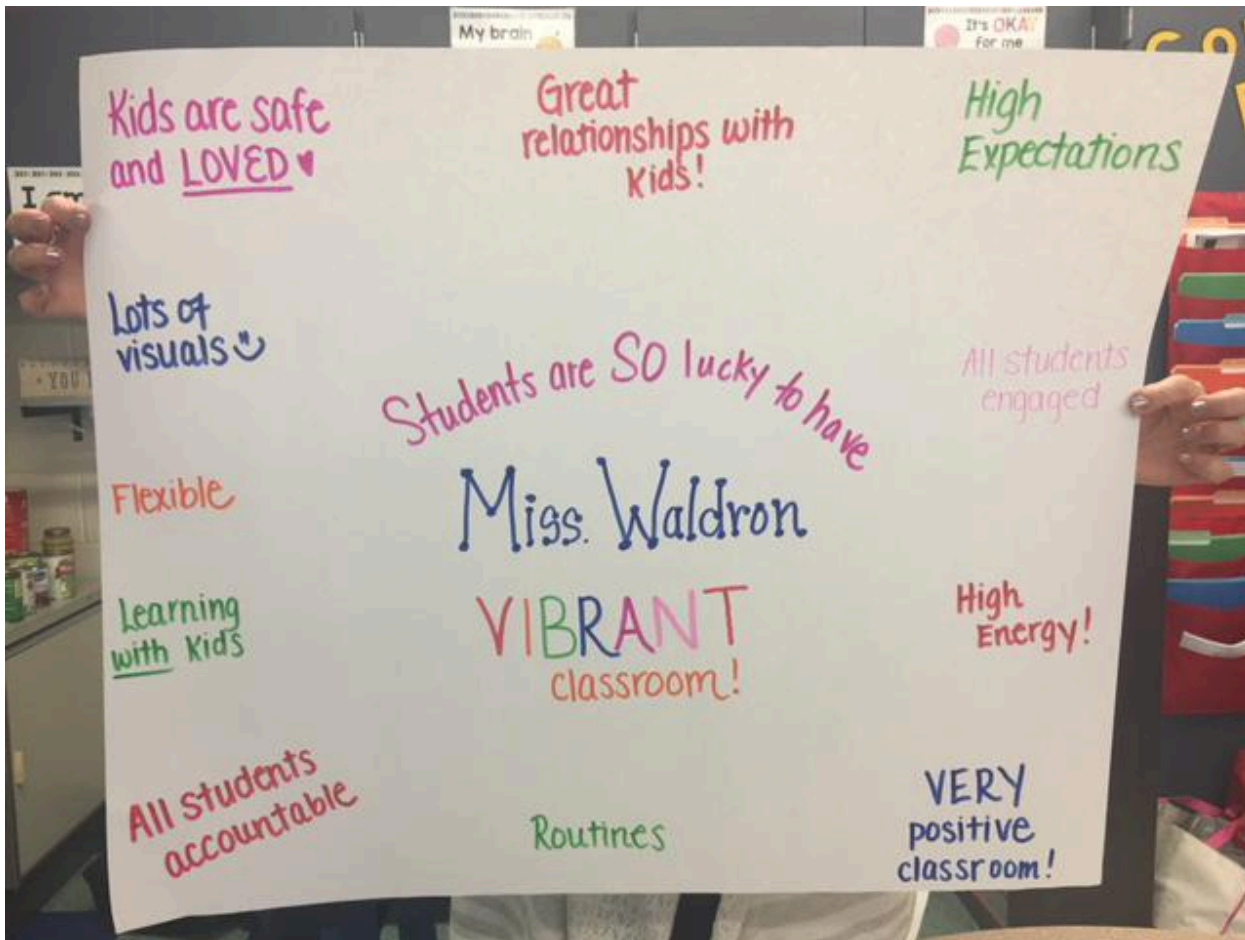 My brain
It's OKAY
for me
Kids are safe
and LOVED
Great
relationships with
Kids!
High
Expectations
I am
Lots of
visuals
YOU
Students are SO lucky to have
All students
engaged
Miss. Waldron
Flexible
VIBRANT
classroom!
Learning
with Kids
High
Energy!
All students
accountable
Routines
VERY
positive
classroom!